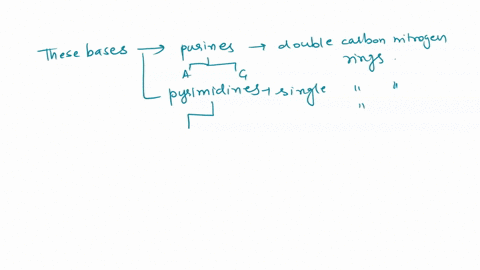 These bases → purines → double carbon nitrogen
rings.
A G
pyrimidines → single " "
"